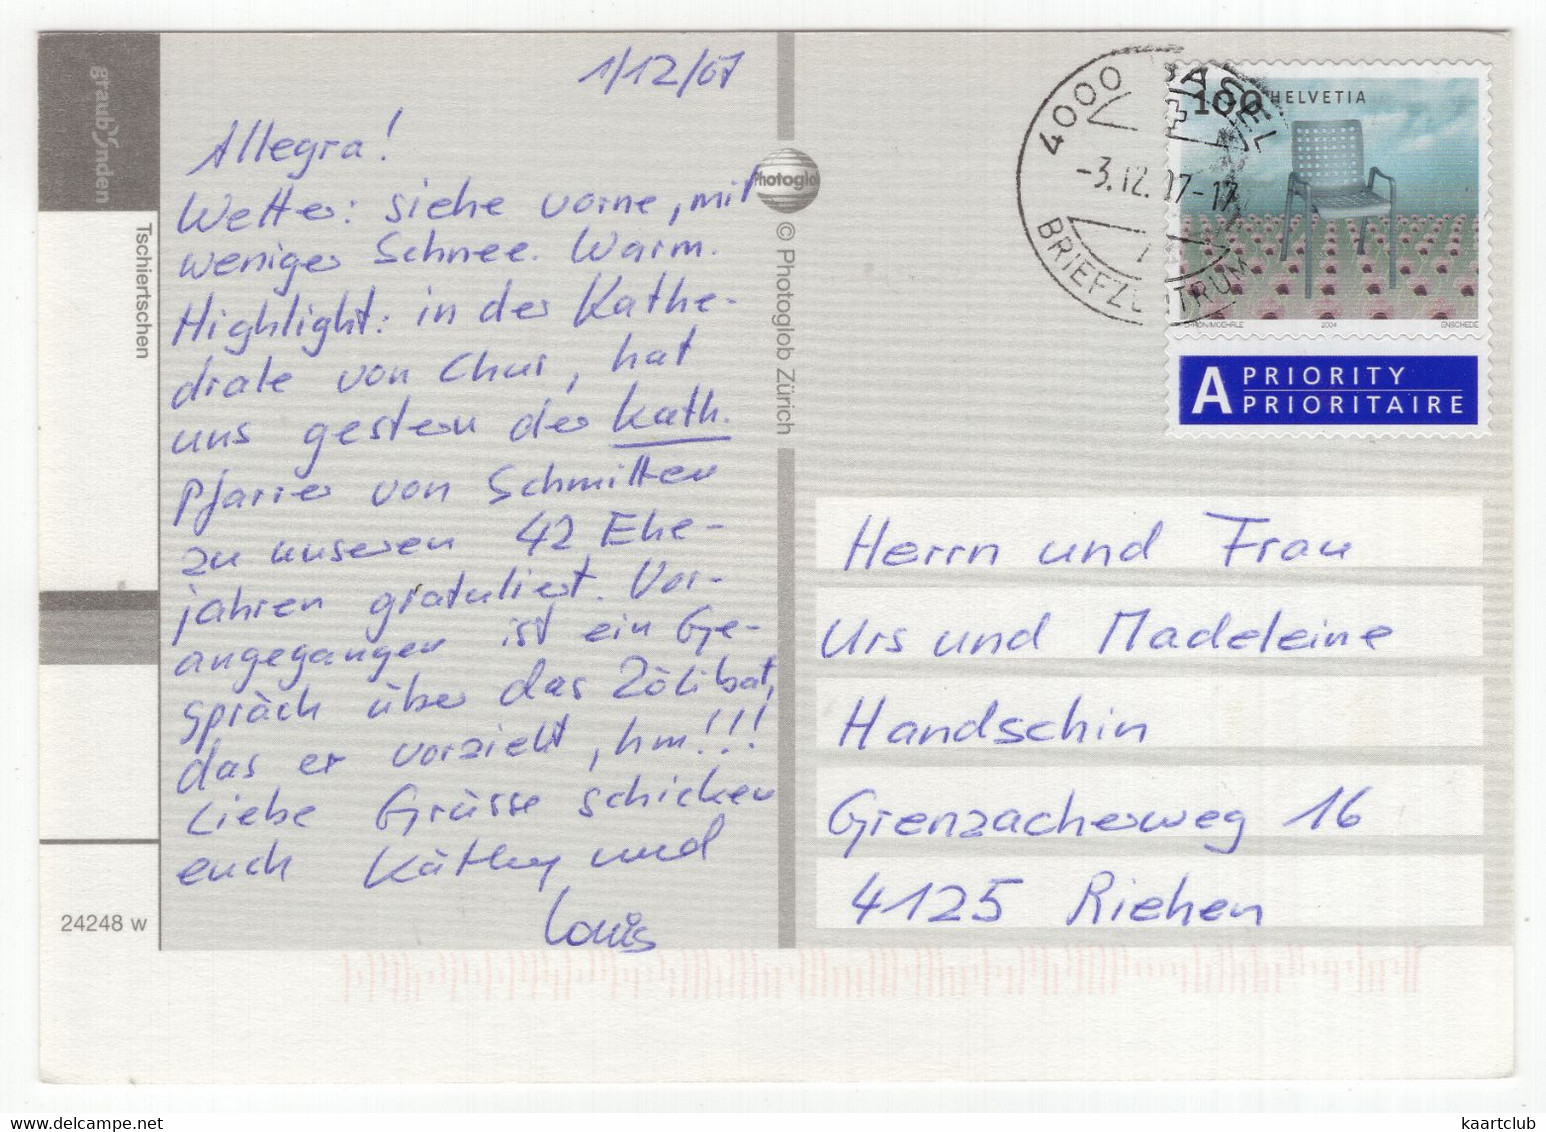 graubünden
Tschiertschen
24248 w
1/12/07
Allegra!
Wetter: siehe vorne, mit
weniger Schnee. Warm.
Highlight: in der Kathe-
drale von Chur, hat
uns gestern der kath.
Pfarrer von Schmitten
zu unseren 42 Ehe-
jahren gratuliert. Vor-
angegangen ist ein Ge-
spräch über das Zölibat,
das er vorzieht, hm!!!
Liebe Grüsse schicken
euch Käthy und
Louis
Photoglob
© Photoglob Zürich
4000 BASEL
-3.12.07-17
BRIEFZENTRUM
100 HELVETIA
2004
ENSCHEDE
A PRIORITY
PRIORITAIRE
Herrn und Frau
Urs und Madeleine
Handschin
Grenzacherweg 16
4125 Riehen
kaartclub